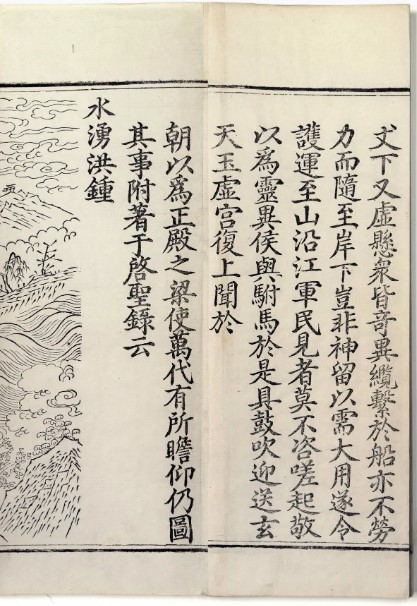 丈下又虛懸衆皆竒異纜繫於船亦不勞
力而隨至岸下豈非神留以需大用遂令
護運至山沿江軍民見者莫不咨嗟起敬
以爲靈異侯與駙馬於是具鼓吹迎送玄
天玉虛宮復上聞於
朝以爲正殿之梁使萬代有所瞻仰仍圖
其事附著于啓聖錄云
水湧洪鍾